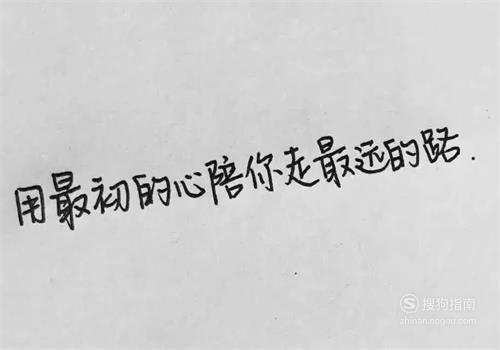 用最初的心陪你走最远的路.
搜狗指南
zhinan.sogou.com